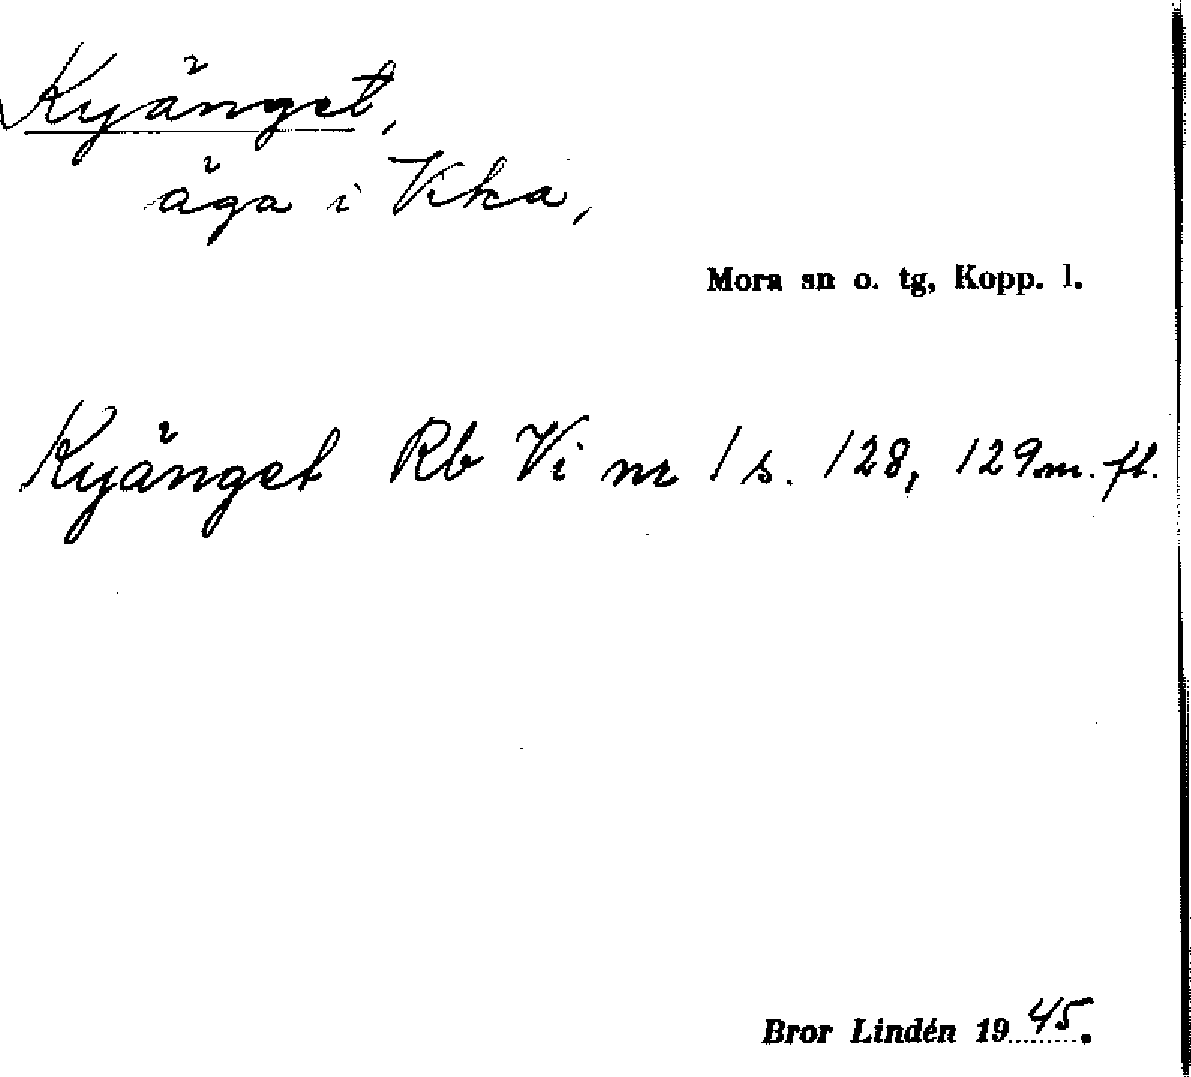 Kyänget,
äga i Vika,
Mora sn o. tg, Kopp. l.
Kyänget Rb Vi nr 1 s. 128, 129 m. fl.
Bror Lindén 1945.